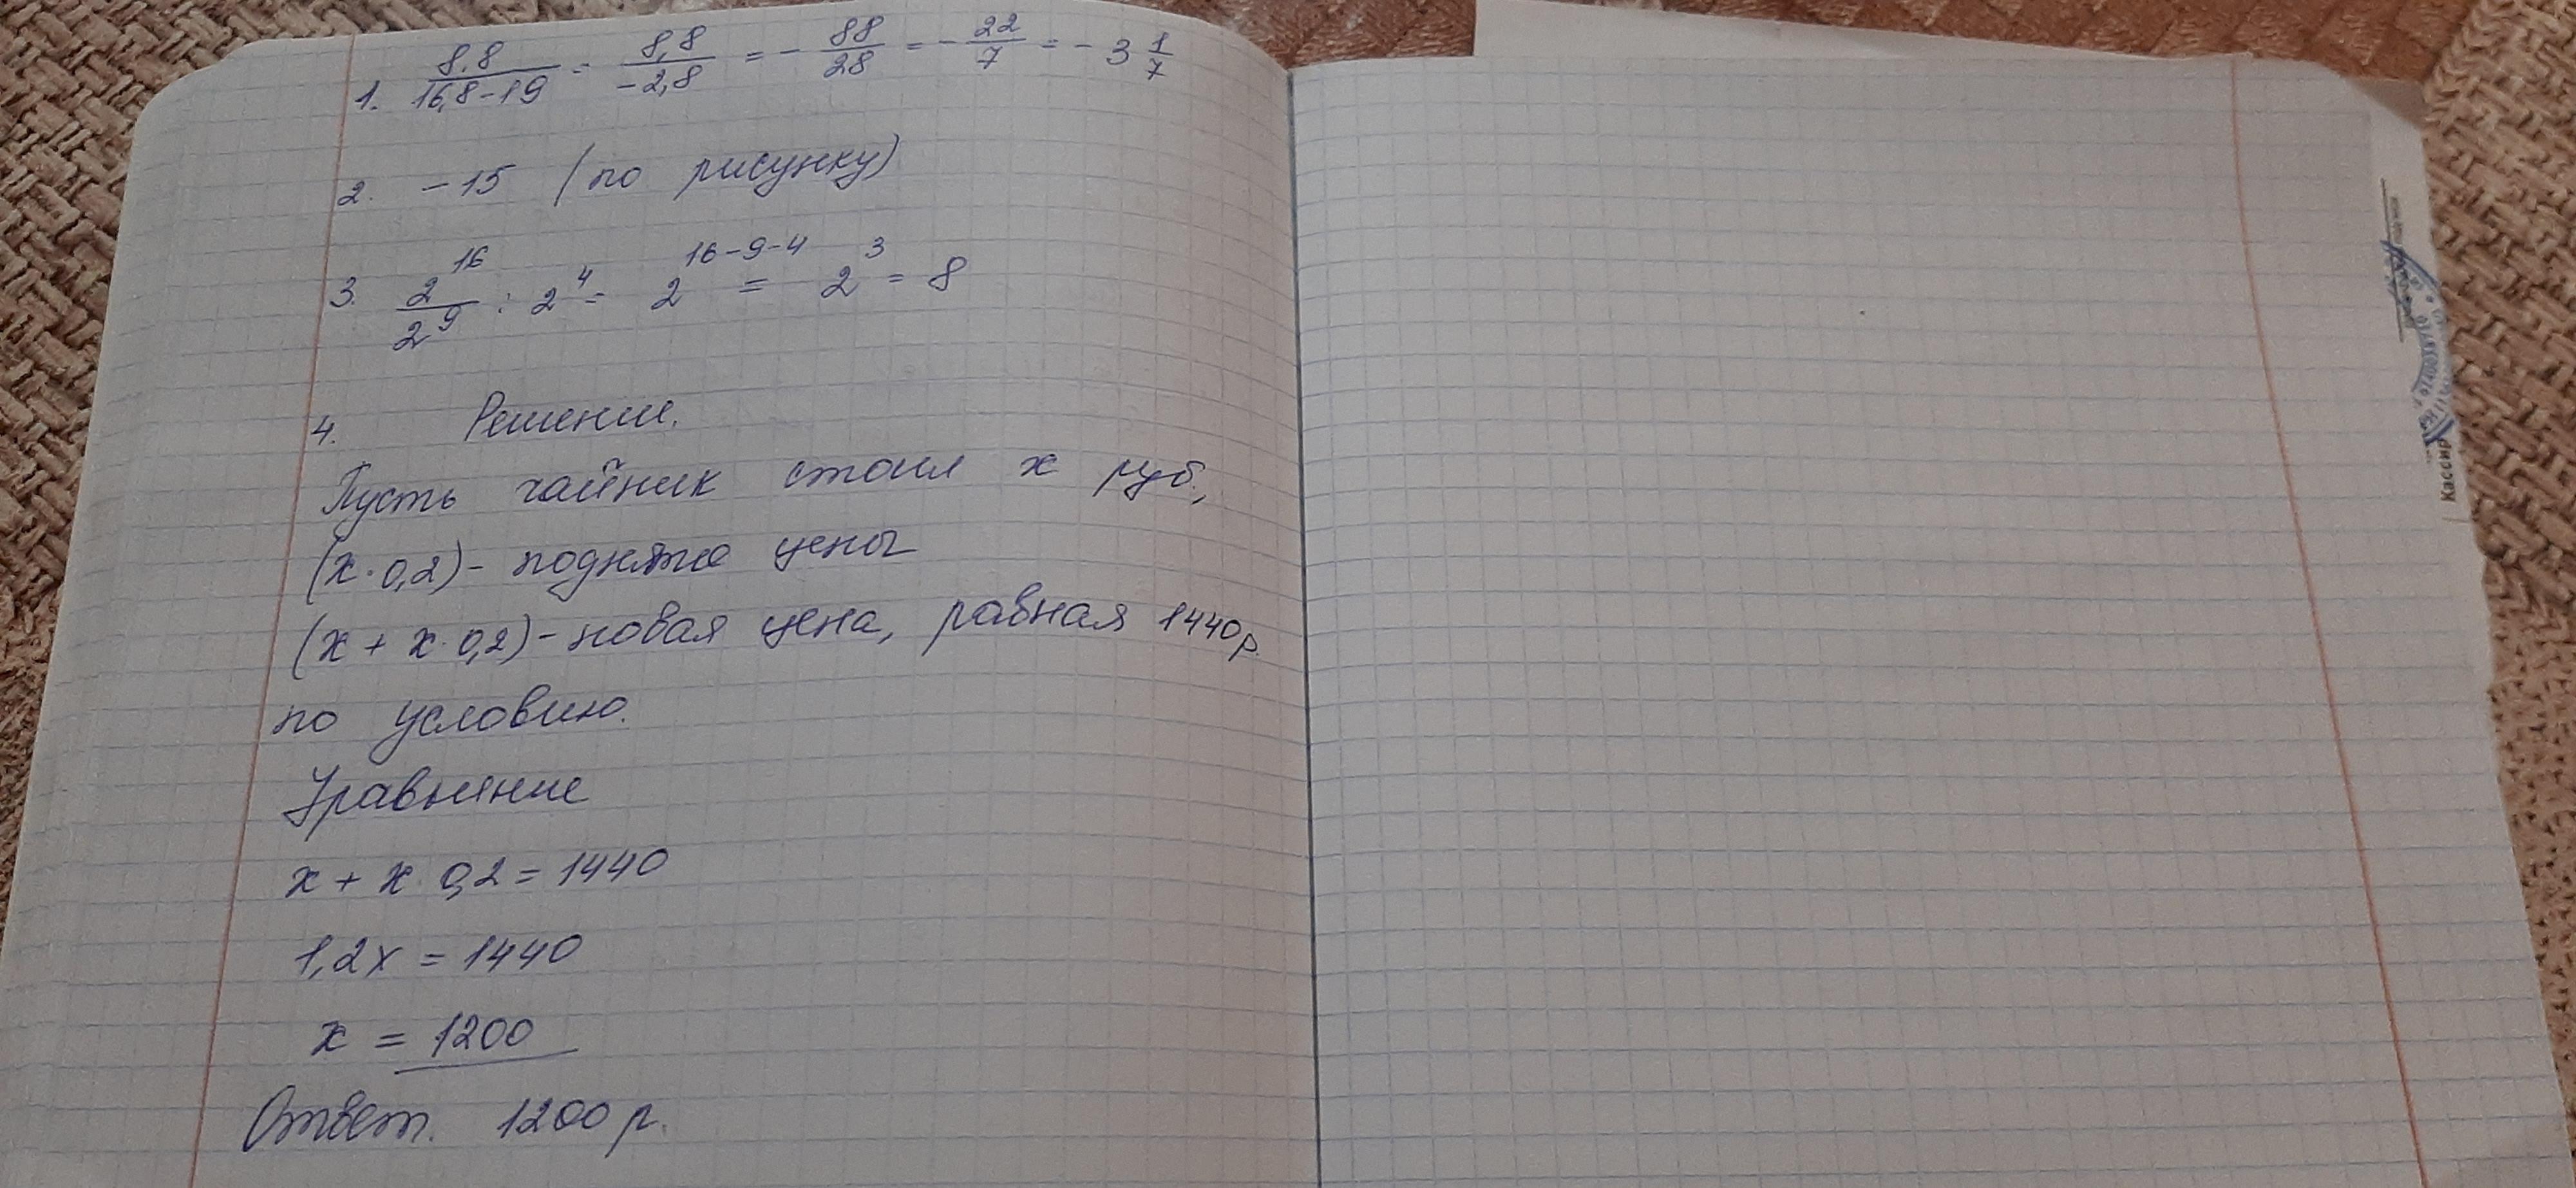 1. 8.8/16,8-19 = 8,8/-2,8 = - 88/28 = - 22/7 = - 3 1/7
2. -15 (по рисунку)
3. 2^16/2^9 : 2^4 = 2^16-9-4 = 2^3 = 8
4. Решение.
Пусть чайник стоил x руб.,
(x·0,2)- поднятие цены
(x + x·0,2)- новая цена, равная 1440р.
по условию.
Уравнение
x + x·0,2 = 1440
1,2x = 1440
x = 1200
Ответ. 1200 р.
Кассир